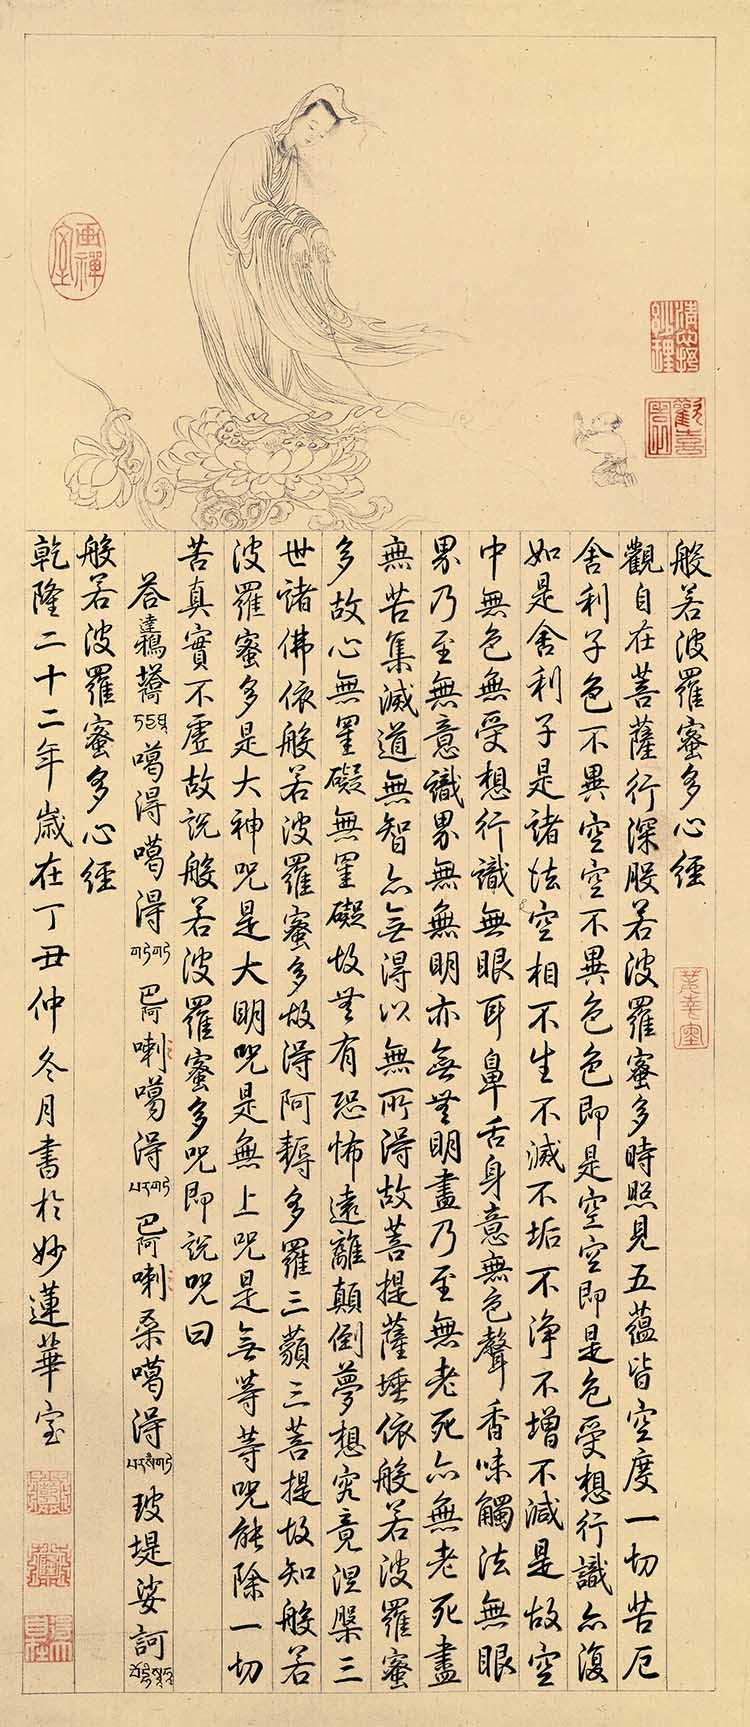 画禪室
般若波羅蜜多心經
觀自在菩薩行深般若波羅蜜多時照見五蘊皆空度一切苦厄
舍利子色不異空空不異色色即是空空即是色受想行識亦復
如是舍利子是諸法空相不生不滅不垢不淨不增不減是故空
中無色無受想行識無眼耳鼻舌身意無色聲香味觸法無眼
界乃至無意識界無無明亦無無明盡乃至無老死亦無老死盡
無苦集滅道無智亦無得以無所得故菩提薩埵依般若波羅蜜
多故心無罣礙無罣礙故無有恐怖遠離顛倒夢想究竟涅槃三
世諸佛依般若波羅蜜多故得阿耨多羅三藐三菩提故知般若
波羅蜜多是大神咒是大明咒是無上咒是無等等咒能除一切
苦真實不虛故說般若波羅蜜多咒即說咒曰
答達鴉 噶得噶得 巴阿喇噶得 巴阿喇桑噶得 玻堤娑訶
般若波羅蜜多心經
乾隆二十二年歲在丁丑仲冬月書於妙蓮華室